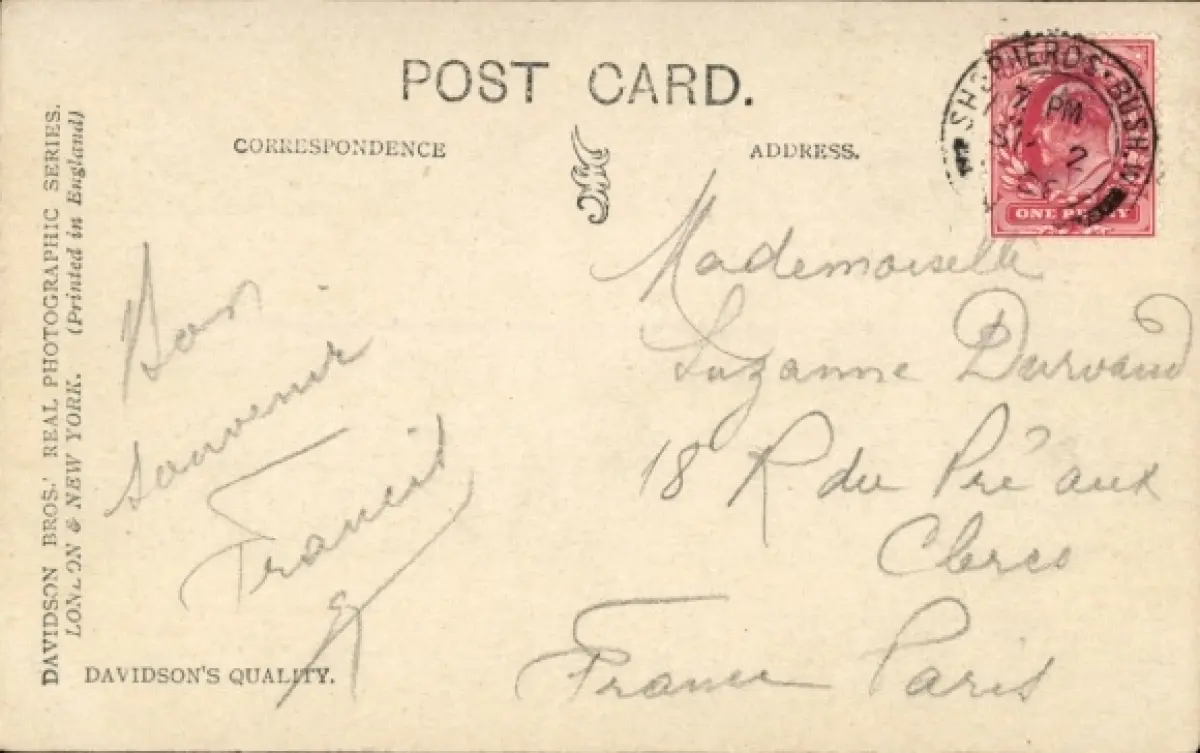 POST CARD.
CORRESPONDENCE
ADDRESS.
SHEPHERDS·BUSH.W
PM
2
ONE PENNY
Bon
souvenir
Francis
Mademoiselle
Suzanne Durvaud
18 R du Pré aux
Clercs
France Paris
DAVIDSON BROS.' REAL PHOTOGRAPHIC SERIES.
LONDON & NEW YORK. (Printed in England)
DAVIDSON'S QUALITY.